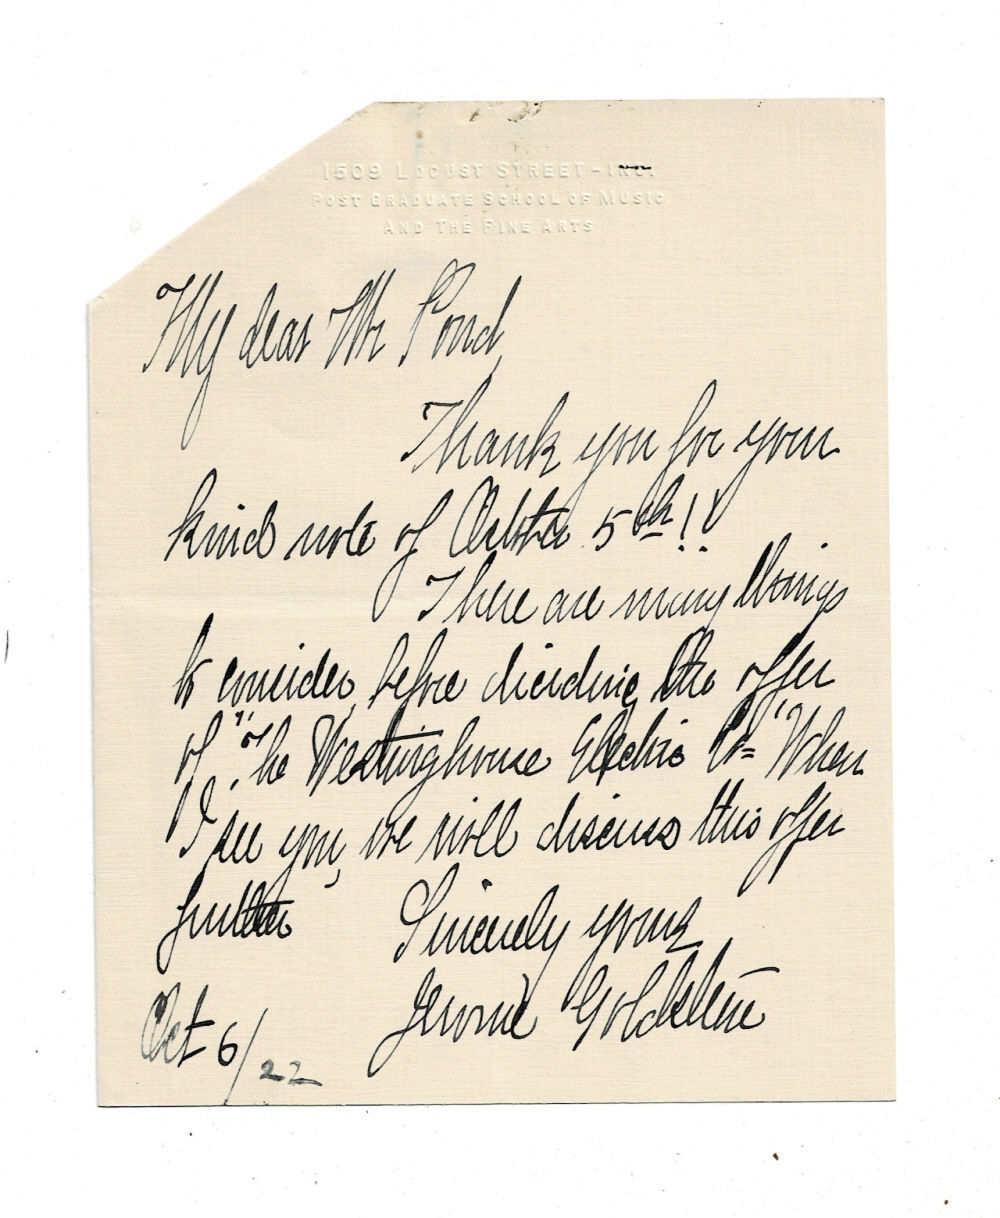 1509 LOCUST STREET-INC.
POST GRADUATE SCHOOL OF MUSIC
AND THE FINE ARTS
My dear Mr Pond,
Thank you for your
kind note of October 5th!!
There are many things
to consider, before deciding the offer
of "The Westinghouse Electric Co=" When
I see you, we will discuss this offer
further
Sincerely yours
Jerome Goldstein
Oct 6/22